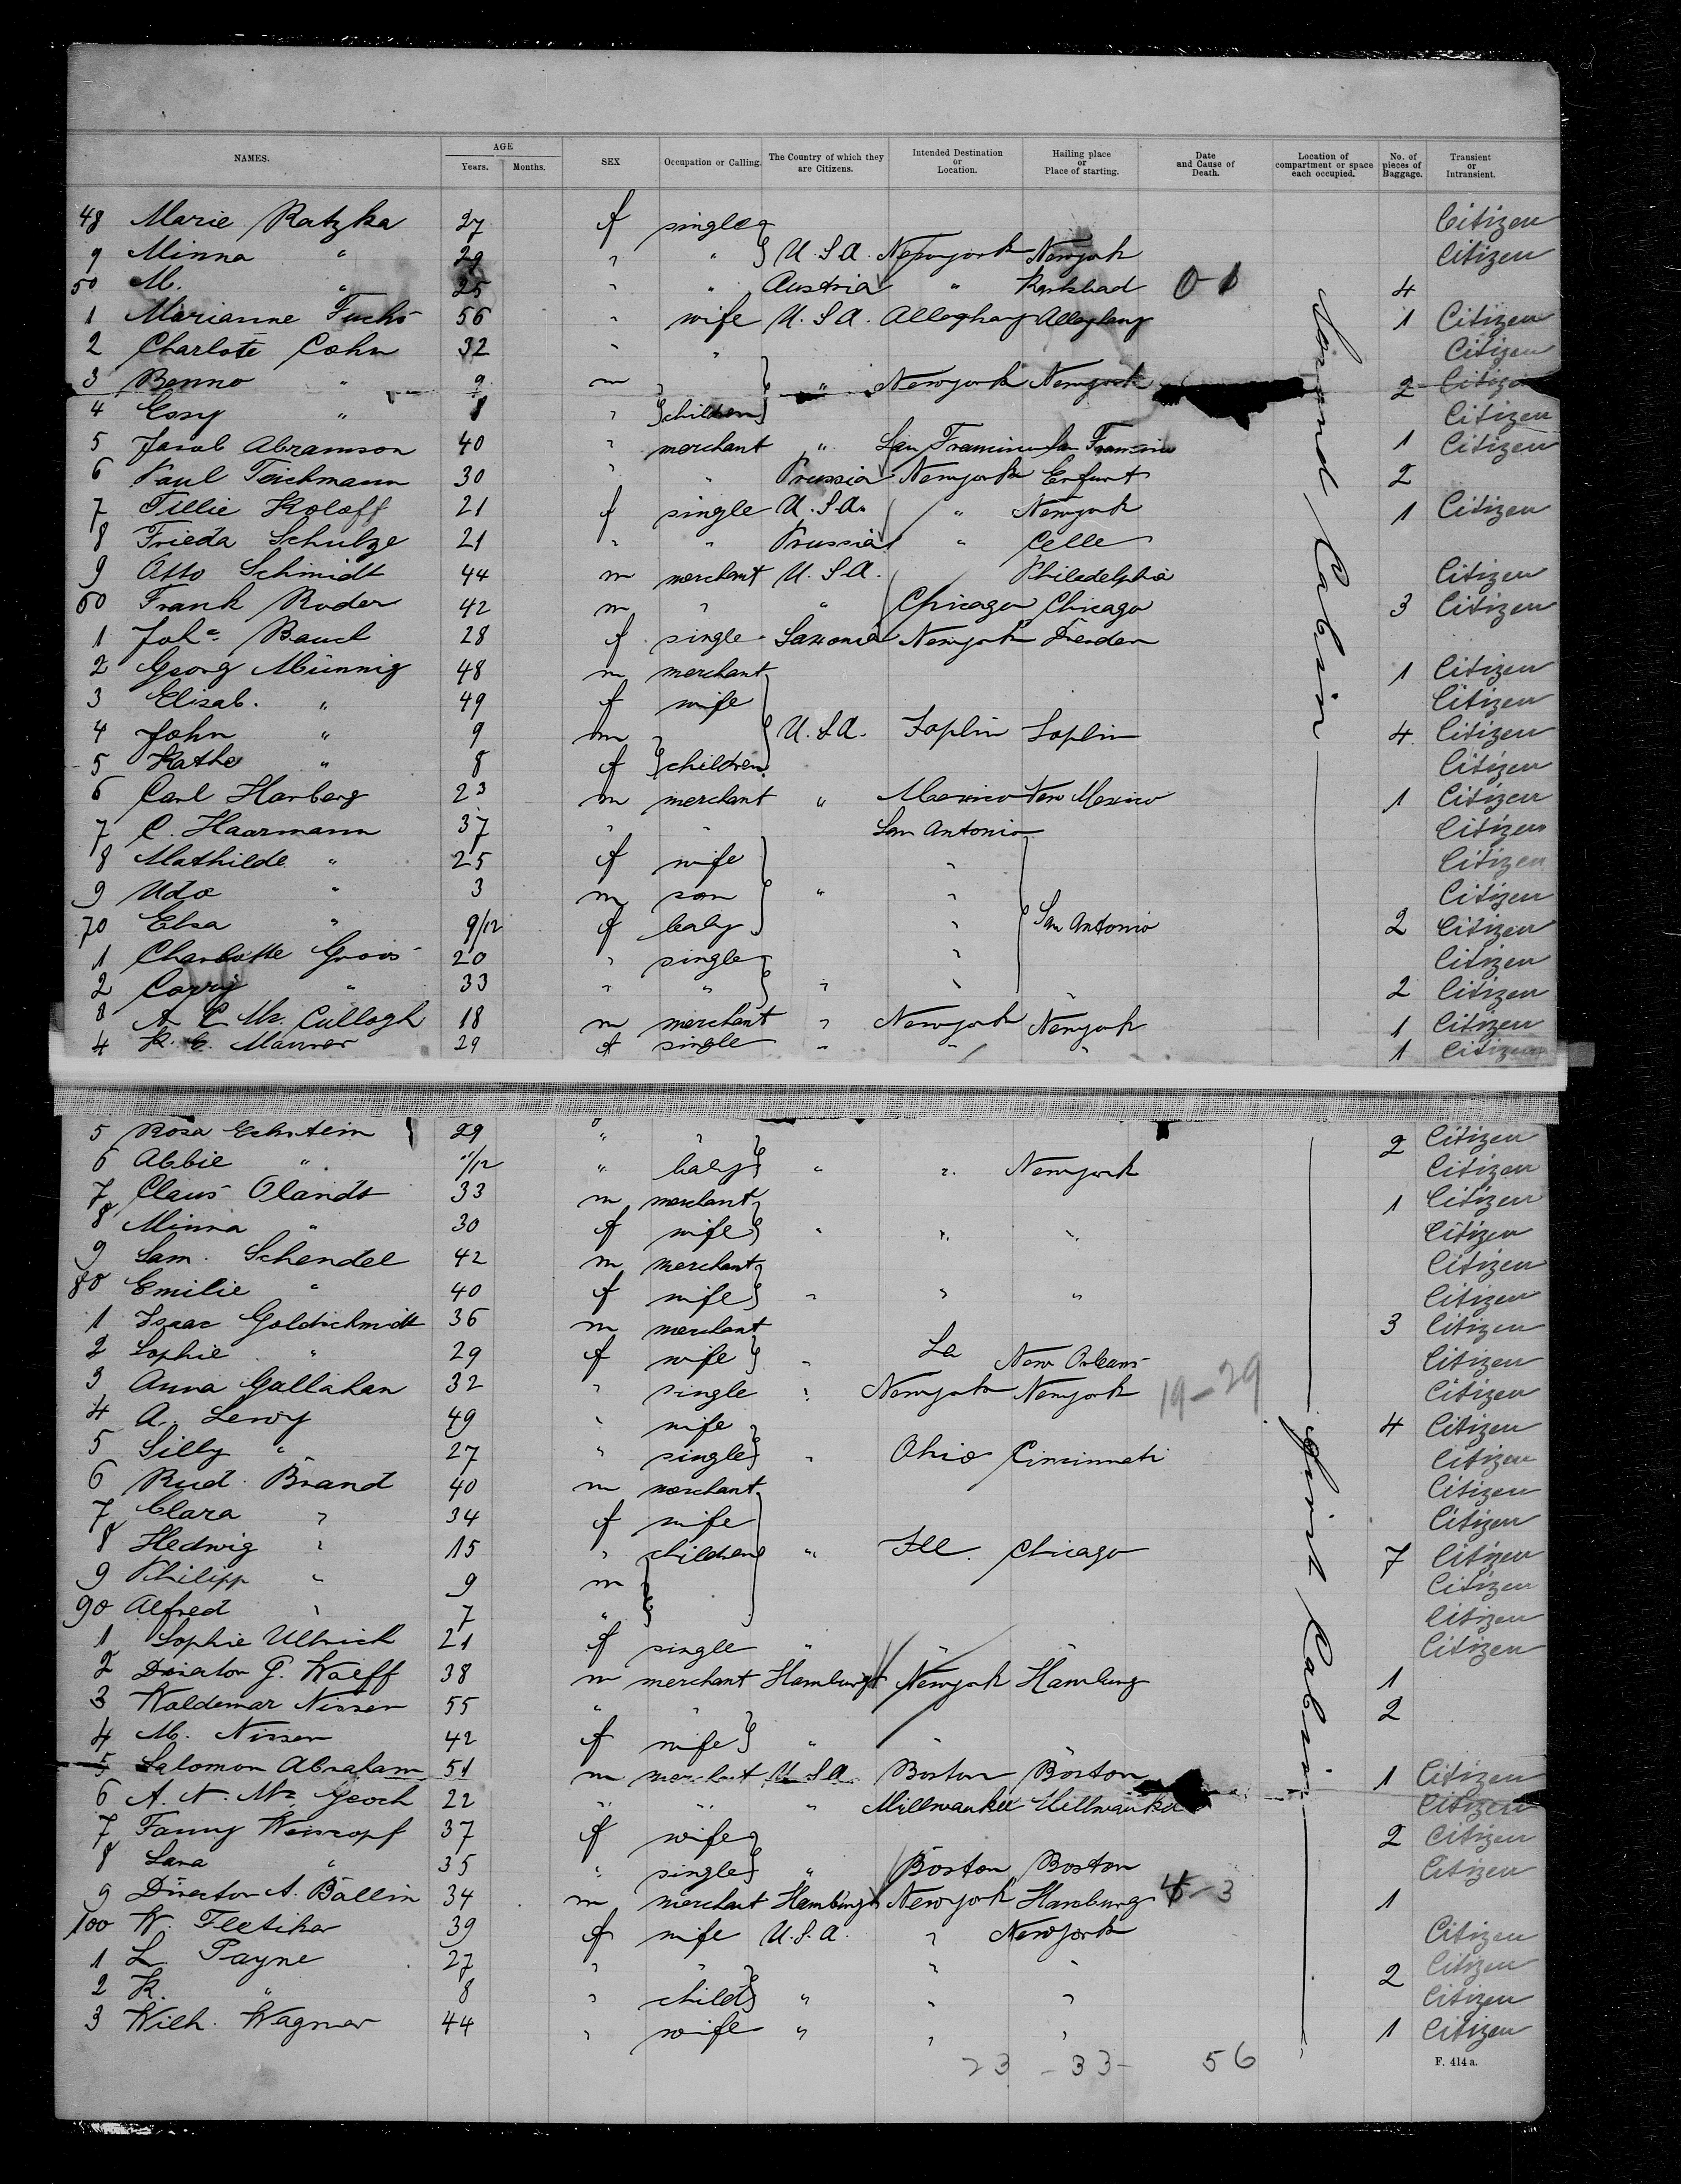 NAMES. AGE Years. Months. SEX Occupation or Calling. The Country of which they are Citizens. Intended Destination or Location. Hailing place or Place of starting. Date and Cause of Death. Location of compartment or space each occupied. No. of pieces of Baggage. Transient or Intransient.
48 Marie Ratzka 27 f single Citizen
9 Minna " 29 " " U.S.A. Newyork Newyork Citizen
50 M. " 25 " " Austria " Karlsbad 0 1 4
1 Marianne Fuchs 56 " wife U.S.A. Alleghany Alleghany 1 Citizen
2 Charlote Cohn 32 " " Citizen
3 Benno " 9 m " Newyork Newyork 2 Citizen
4 " " children Citizen
5 Jacob Abramson 40 " merchant " San Francisco San Francisco 1 Citizen
6 Paul Teichmann 30 " " Prussia Newyork Erfurt 2
7 Tillie Koloff 21 f single U.S.A. " Newyork 1 Citizen
8 Frieda Schulze 21 " " Prussia " Celle
9 Otto Schmidt 44 m merchant U.S.A. Philadelphia Citizen
60 Frank Roder 42 m " " Chicago Chicago 3 Citizen
1 Joha Bauch 28 f single Saxonia Newyork Dresden
2 Georg Münnig 48 m merchant 1 Citizen
3 Elisab. " 49 f wife Citizen
4 John " 9 m U.S.A. Joplin Joplin 4 Citizen
5 Kathe " 8 f children Citizen
6 Carl Harberg 23 m merchant " Mexico New Mexico 1 Citizen
7 C. Haarmann 37 " " San Antonio Citizen
8 Mathilde " 25 f wife " Citizen
9 Udo " 3 m son " " Citizen
70 Elsa " 9/12 f baby " San Antonio 2 Citizen
1 Charlotte Groos 20 " single " Citizen
2 Carry " 33 " " " " 2 Citizen
3 A. C. Mc. Cullogh 18 m merchant " Newyork Newyork 1 Citizen
4 K. E. 29 f single " " " 1 Citizen
Second Cabin
5 Rosa Echstein 29 " " 2 Citizen
6 Abbie " 11/12 " baby " " Newyork Citizen
7 Claus Olandt 33 m merchant 1 Citizen
8 Minna " 30 f wife " " " Citizen
9 Sam. Schendel 42 m merchant Citizen
80 Emilie " 40 f wife " " " Citizen
1 Isaac Goldschmidt 36 m merchant 3 Citizen
2 Sophie " 29 f wife " La New Orleans Citizen
3 Anna Gallahan 32 " single " Newyork Newyork 19-29 Citizen
4 A. Levy 49 " wife 4 Citizen
5 Silly " 27 " single " Ohio Cincinnati Citizen
6 Rud. Brand 40 m merchant Citizen
7 Clara " 34 f wife Citizen
8 Hedwig " 15 " children " Ill. Chicago 7 Citizen
9 Philipp " 9 m Citizen
90 Alfred " 7 " Citizen
1 Sophie Ullrich 21 f single " " " Citizen
2 Director G. Wolff 38 m merchant Hamburg Newyork Hamburg 1
3 Waldemar Nissen 55 " " 2
4 M. Nissen 42 f wife " " "
5 Salomon Abraham 51 m merchant U.S.A. Boston Boston 1 Citizen
6 A. N. Mc Geoch 22 " " " Millwaukee Millwaukee Citizen
7 Fanny Weiscopf 37 f wife 2 Citizen
8 Lara " 35 " single " Boston Boston Citizen
9 Director A. Ballin 34 m merchant Hamburg Newyork Hamburg 3 1
100 W. Fletiker 39 f wife U.S.A. " Newyork Citizen
1 L. Payne 27 " " " " 2 Citizen
2 K. " 8 " child " " " Citizen
3 Wilh. Wagner 44 " wife " " " 1 Citizen
First Cabin
23 - 33 - 56
F. 414 a.